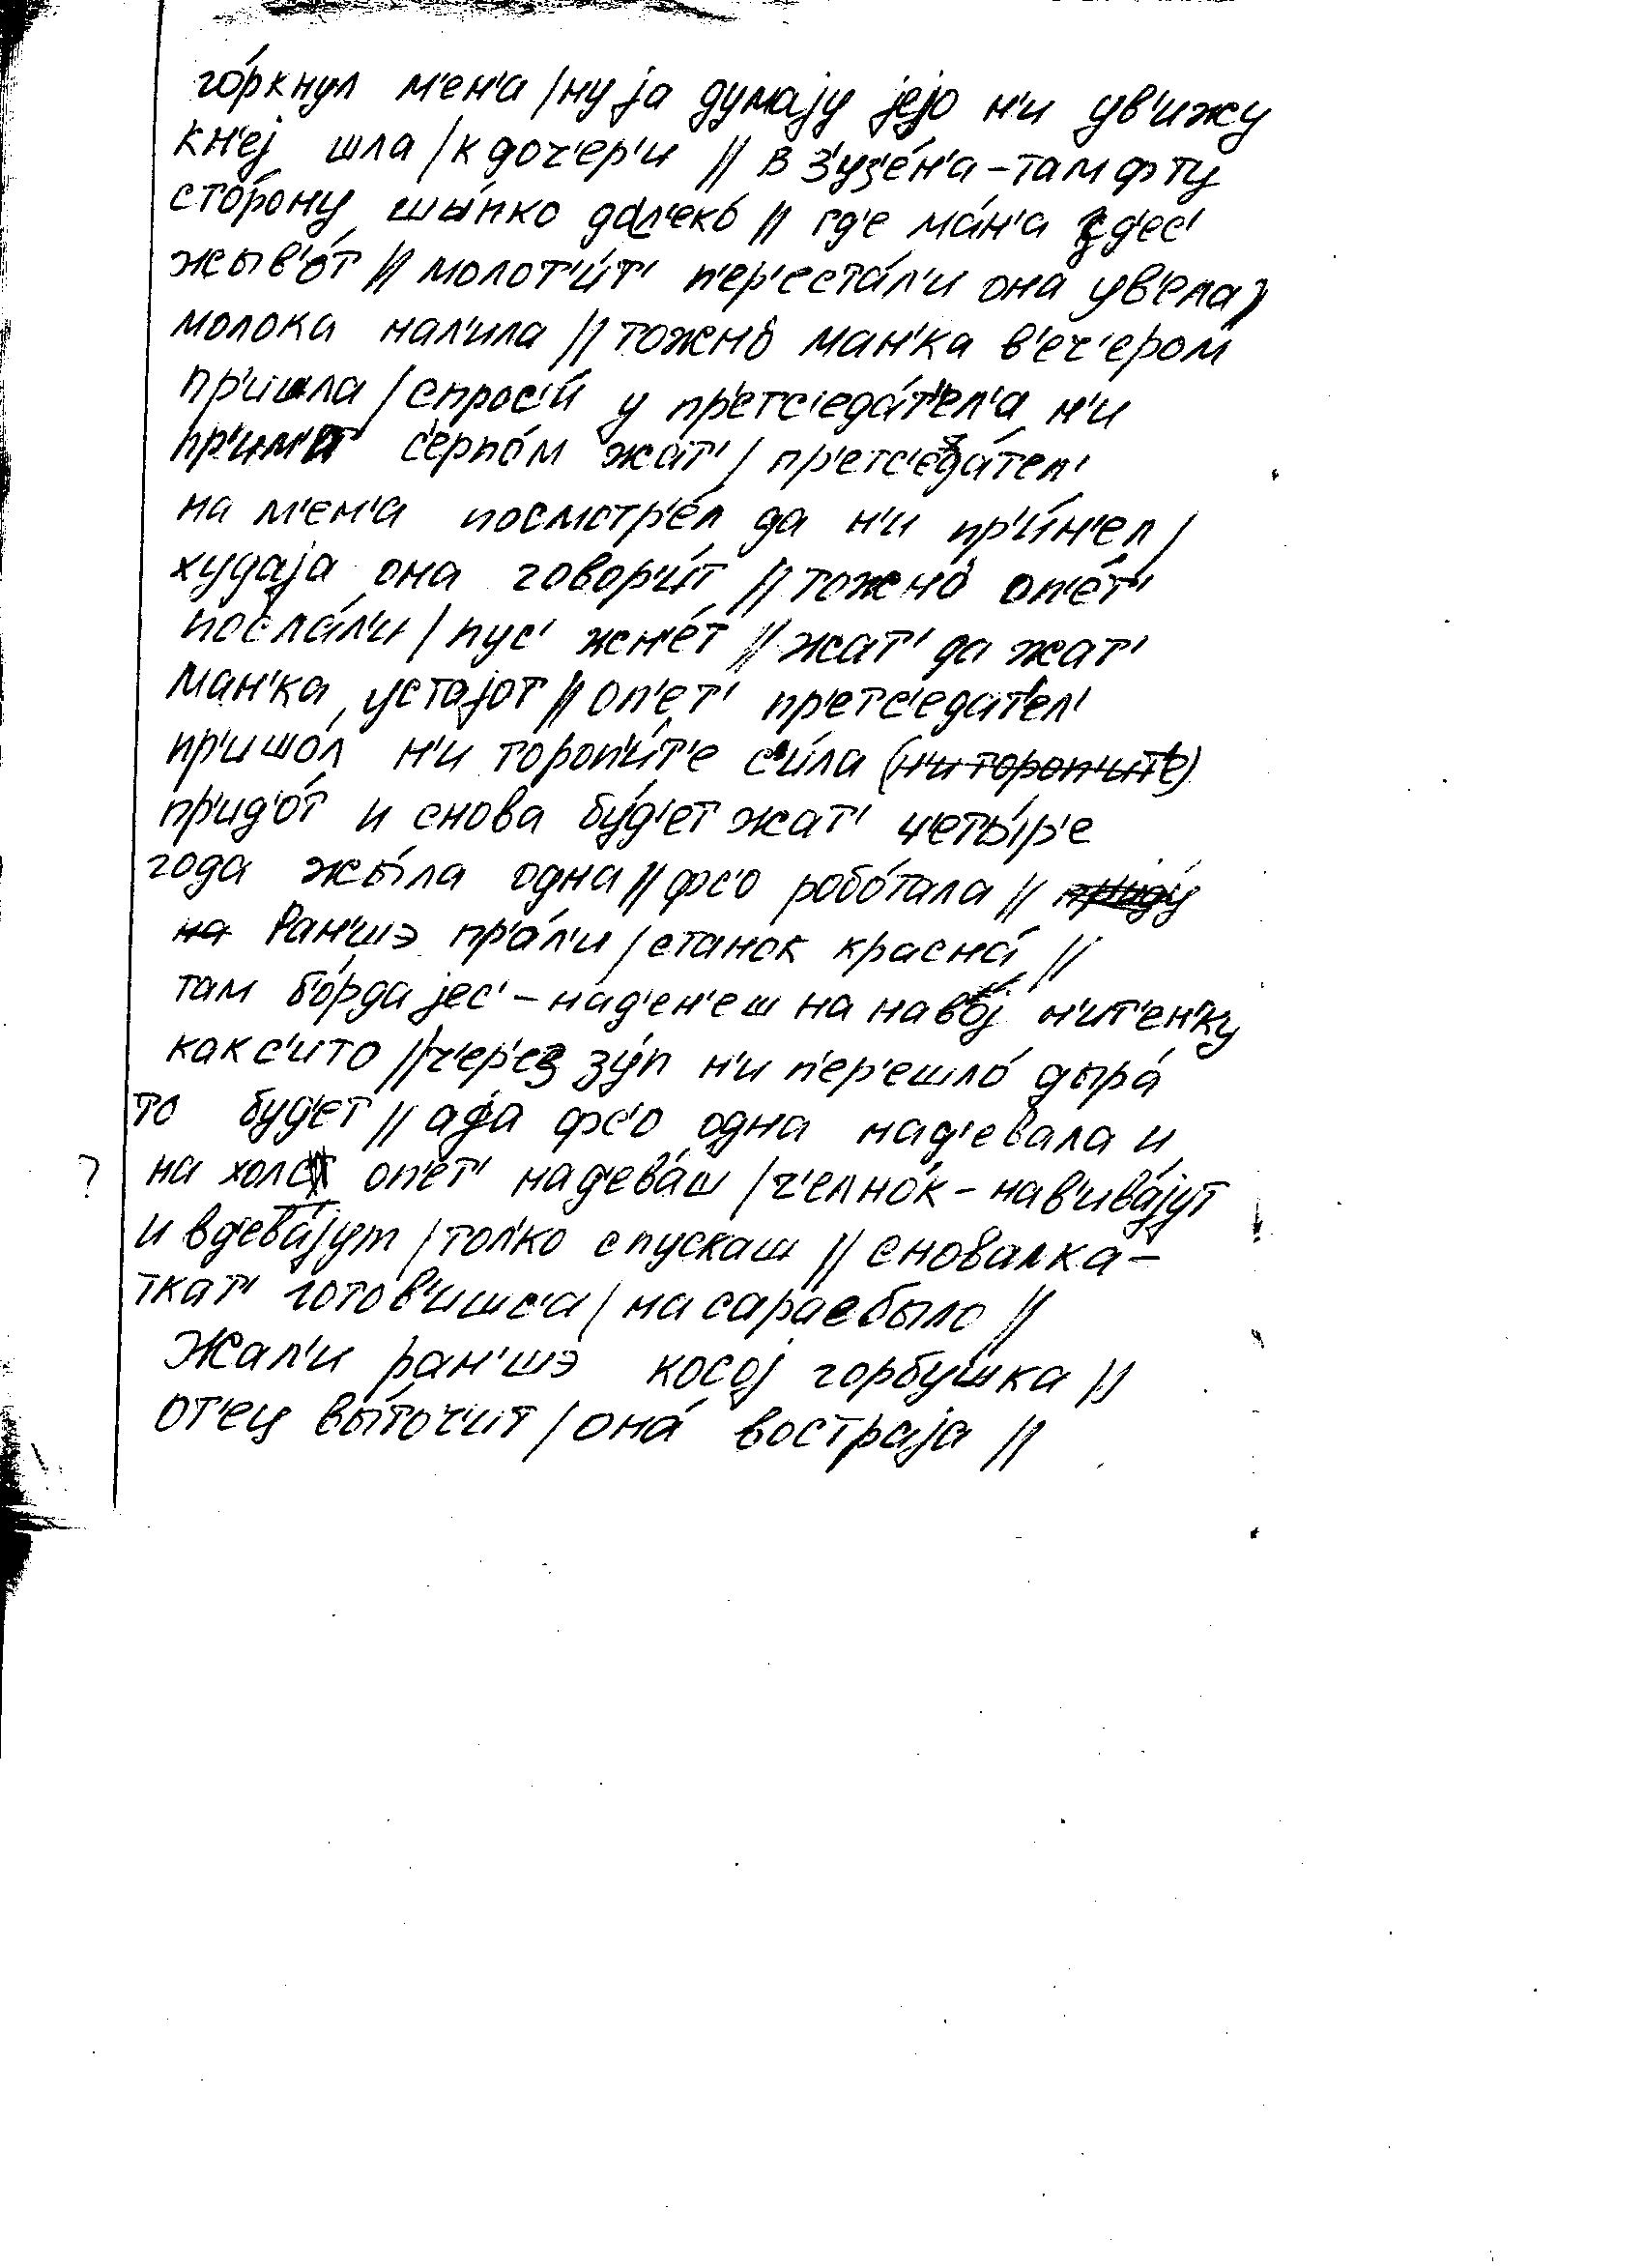 го́ркнул м'ен'а / ну jа думаjу jejo н'и ув'ижу
кн'еj шла / к доч'ер'и // в З'уз'е́н'а – там ф ту
сто́рону шы́пко дал'еко́ // гд'е ма́н'а здес'
жыв'о́т // молот'и́т' п'ер'еста́л'и она ув'ела /
молока нал'ила // тожно́ ман'ка в'еч'ером
пр'ишла / спрос'и́ у пр'етс'еда́т'ел'а н'и
пр'им'от с'ерпо́м жат' / пр'етс'еда́тел'
на м'ен'а посмотр'е́л да н'и пр'и́н'ел /
худаjа она говор'и́т // тожно́ оп'е́т'
посла́л'и / пус' жн'е́т // жат' да жат'
ман'ка устаjот // оп'ет' пр'етс'едат'ел'
пр'ишо́л н'и тороп'и́т'е с'и́ла (н'и тороп'ит'е)
пр'ид'о́т и снова бу́д'ет жат' ч'еты́р'е
года жы́ла одна // фс'о робо́тала // приду́
на Ран'шэ пр'а́л'и / станок красна́ //
там б'о́рда jес' – на́д'ен'еш на наво́j н'ит'ен'ку
как с'ито // ч'ер'ез зу́п н'и п'ер'ешло́ дыра́
то буд'ет // а jа фс'о одна над'евала и
? на холст оп'ет' над'ева́ш / ч'елно́к – нав'ива́jут
и вд'ева́jут / тол'ко спускаш // сновалка –
ткат' готов'ишс'а / на сарае было //
Жал'и ран'шэ косоj горбушка //
от'ец вы́точит / она́ востраjа //